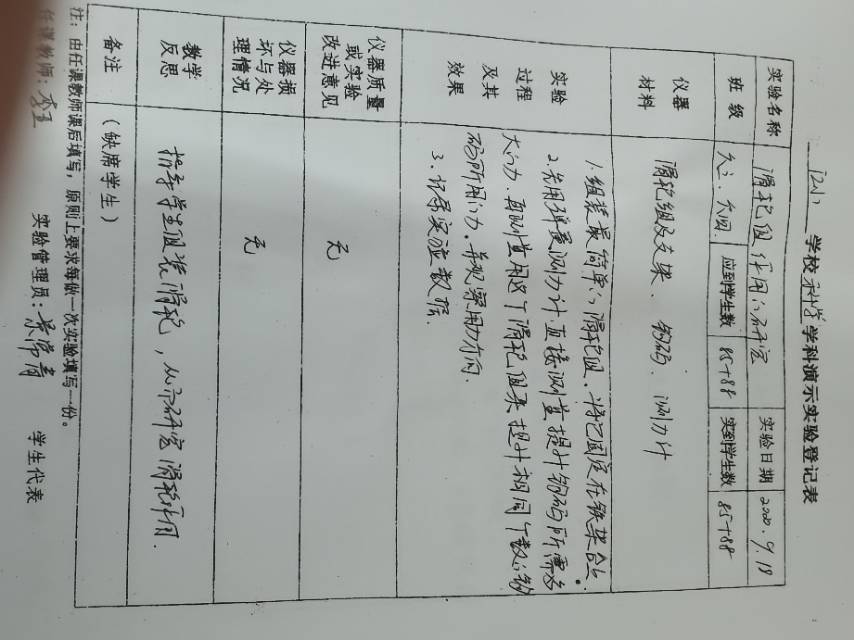 学校科学学科演示实验登记表
实验名称 滑轮组作用的研究 实验日期 2020.9.18
班级 六三、六四 应到学生数 85+88 实到学生数 85+88
仪器材料 滑轮组及支架、钩码、测力计
实验过程及其效果
1.组装最简单的滑轮组,将它固定在铁架台上.
2.先用弹簧测力计直接测量提升钩码所需多
大的力.再测量用这个滑轮组来提升相同个数的钩
码所用的力.并观察用力方向.
3.记录实验数据.
仪器质量或实验改进意见 无
仪器损坏与处理情况 无
教学反思 指导学生组装滑轮,从而研究滑轮作用.
备注 (缺席学生)
注:由任课教师课后填写,原则上要求每做一次实验填写一份。
任课教师:李 实验管理员:景常青 学生代表